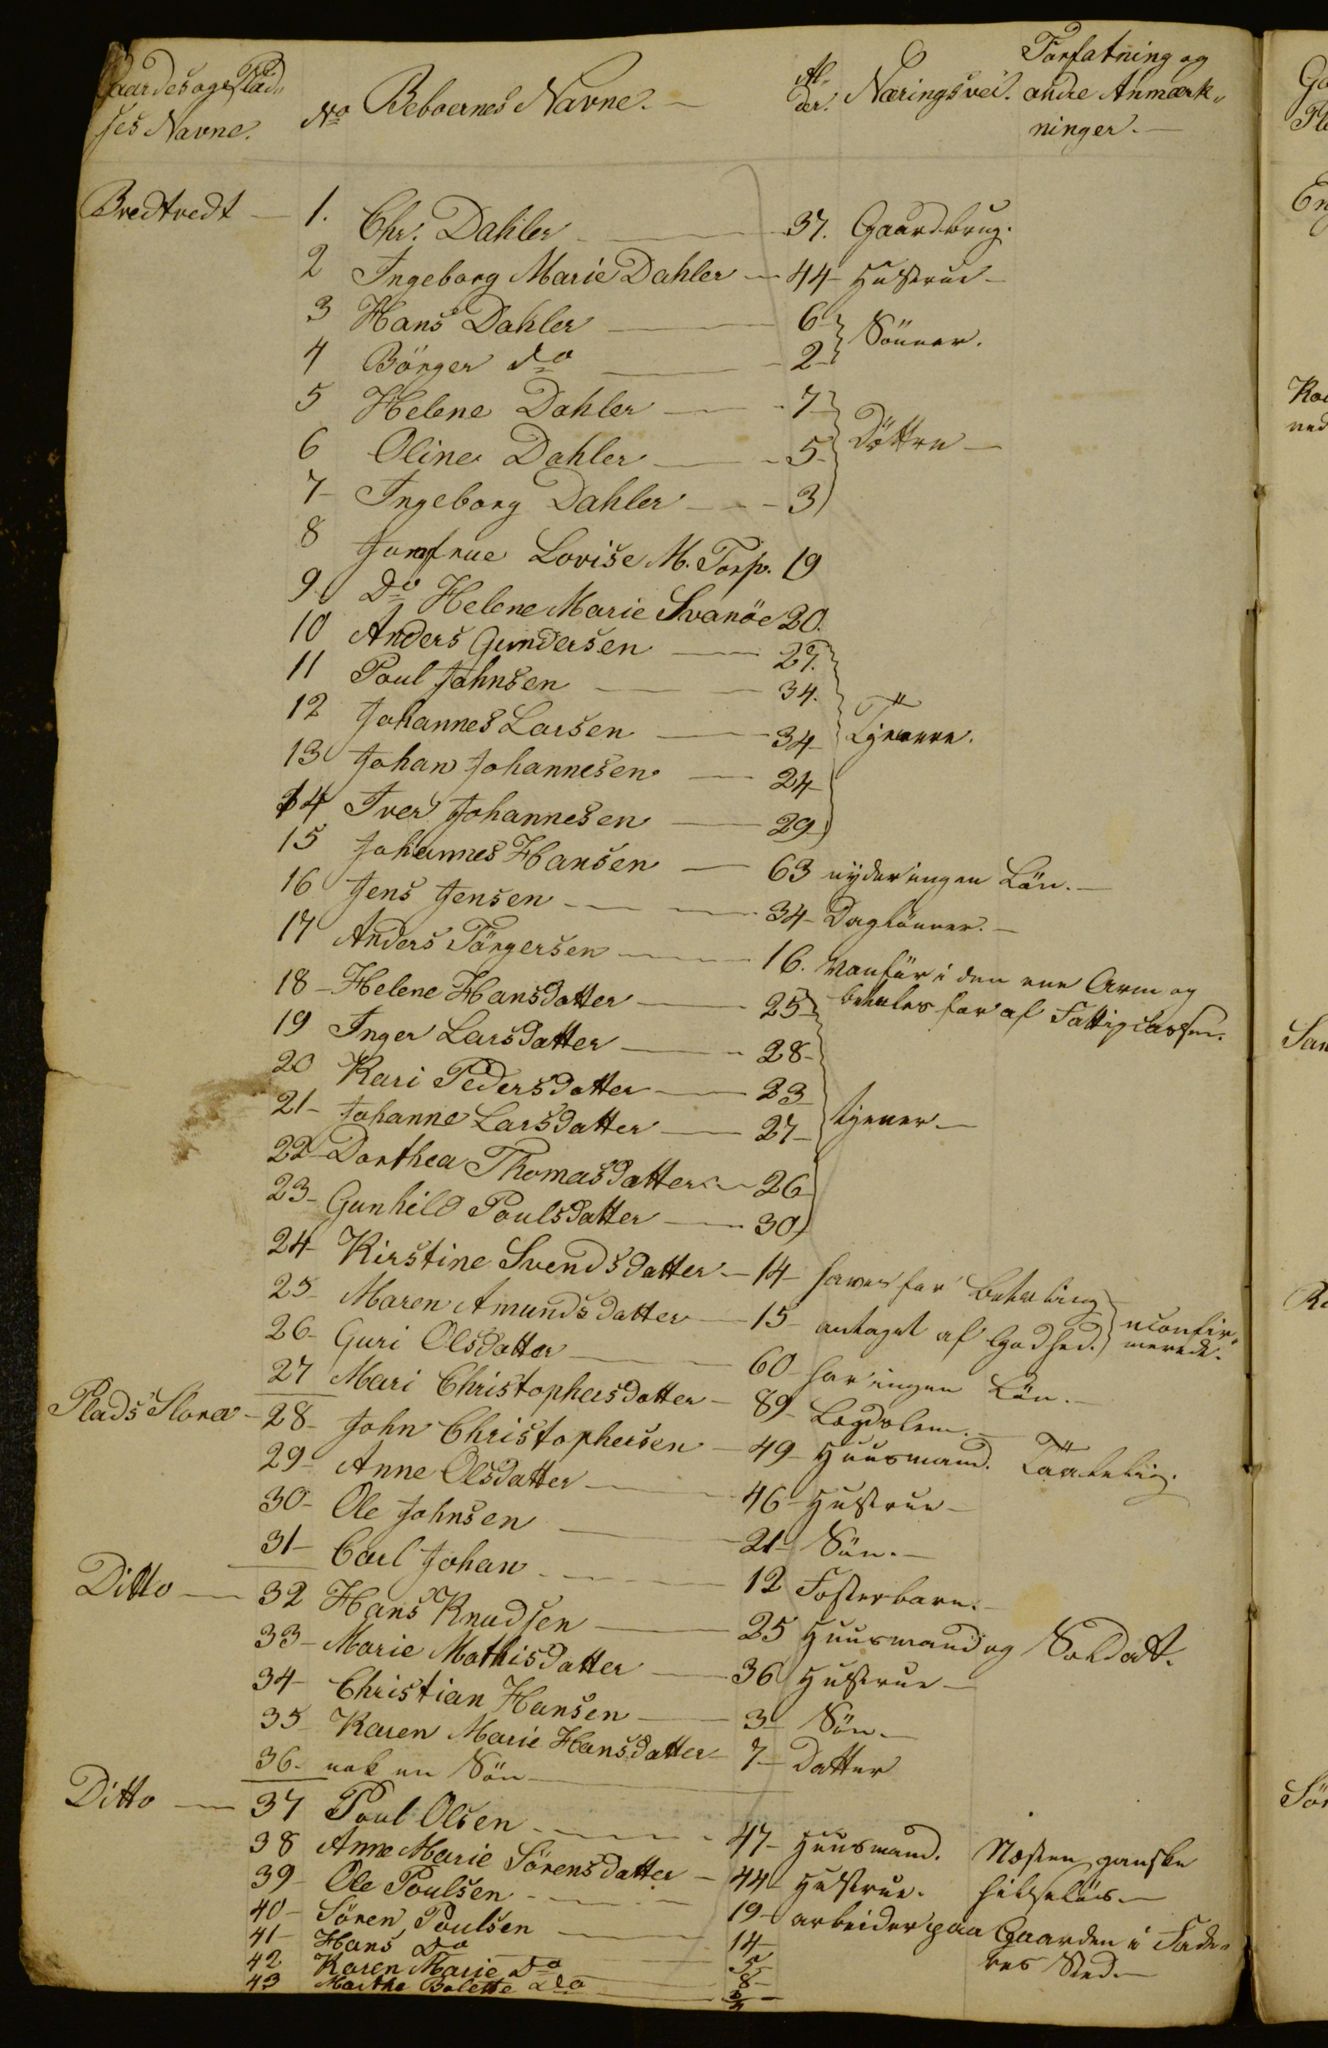 Gaardes og Plad-
ses Navne.
No Beboernes Navne.
Al-
der.
Næringsvei.
Forfatning og
andre Anmærk-
ninger.
Bredtvedt 1. Chr. Dahler 37. Gaardbrug.
2 Ingeborg Marie Dahler 44 Hustrue
3 Hans Dahler 6 Sönner.
4 Börger do 2
5 Helene Dahler 7 Döttre
6 Oline Dahler 5
7 Ingeborg Dahler 3
8 Jomfrue Lovise M. Torp. 19
9 Do Helene Marie Svanöe 20.
10 Anders Gundersen 27.
11 Poul Johnsen 34.
12 Johannes Larsen 34 Tjenere.
13 Johan Johannesen 24
14 Iver Johannesen 29
15 Johannes Hansen 63 nyder ingen Lön.
16 Jens Jensen 34 Daglönner.
17 Anders Törgersen 16. vanför i den ene Arm og
betales for af Fattigcassen.
18 Helene Hansdatter 25
19 Inger Larsdatter 28
20 Kari Pedersdatter 23
21 Johanne Larsdatter 27 tjener
22 Dorthea Thomasdatter 26
23 Gunhild Poulsdatter 30
24 Kirstine Svendsdatter 14 haves for Betaling
25 Maren Amundsdatter 15 antaget af Godhed. uconfir-
merede.
26 Guri Olsdatter 60 har ingen Lön.
27 Mari Christophersdatter 89 Lægdslem.
Plads Slora 28 John Christophersen 49 Huusmand. Taalelig.
29 Anne Olsdatter 46 Hustrue
30 Ole Johnsen 21 Sön.
31 Carl Johan 12 Fosterbarn.
Ditto 32 Hans Knudsen 25 Huusmand og Soldatt.
33 Marie Mathisdatter 36 Hustrue
34 Christian Hansen 3 Sön.
35 Karen Marie Hansdatter 7 Datter
36. nok en Sön
Ditto 37 Poul Olsen 47 Huusmand. Næsten ganske
helselös.
38 Anne Marie Sörensdatter 44 Hustrue.
39 Ole Poulsen 19 arbeider paa Gaarden i Fade-
rens Sted.
40 Sören Poulsen 14
41 Hans Do 5
42 Karen Marie Do 8
43 Marthe Bolette Do